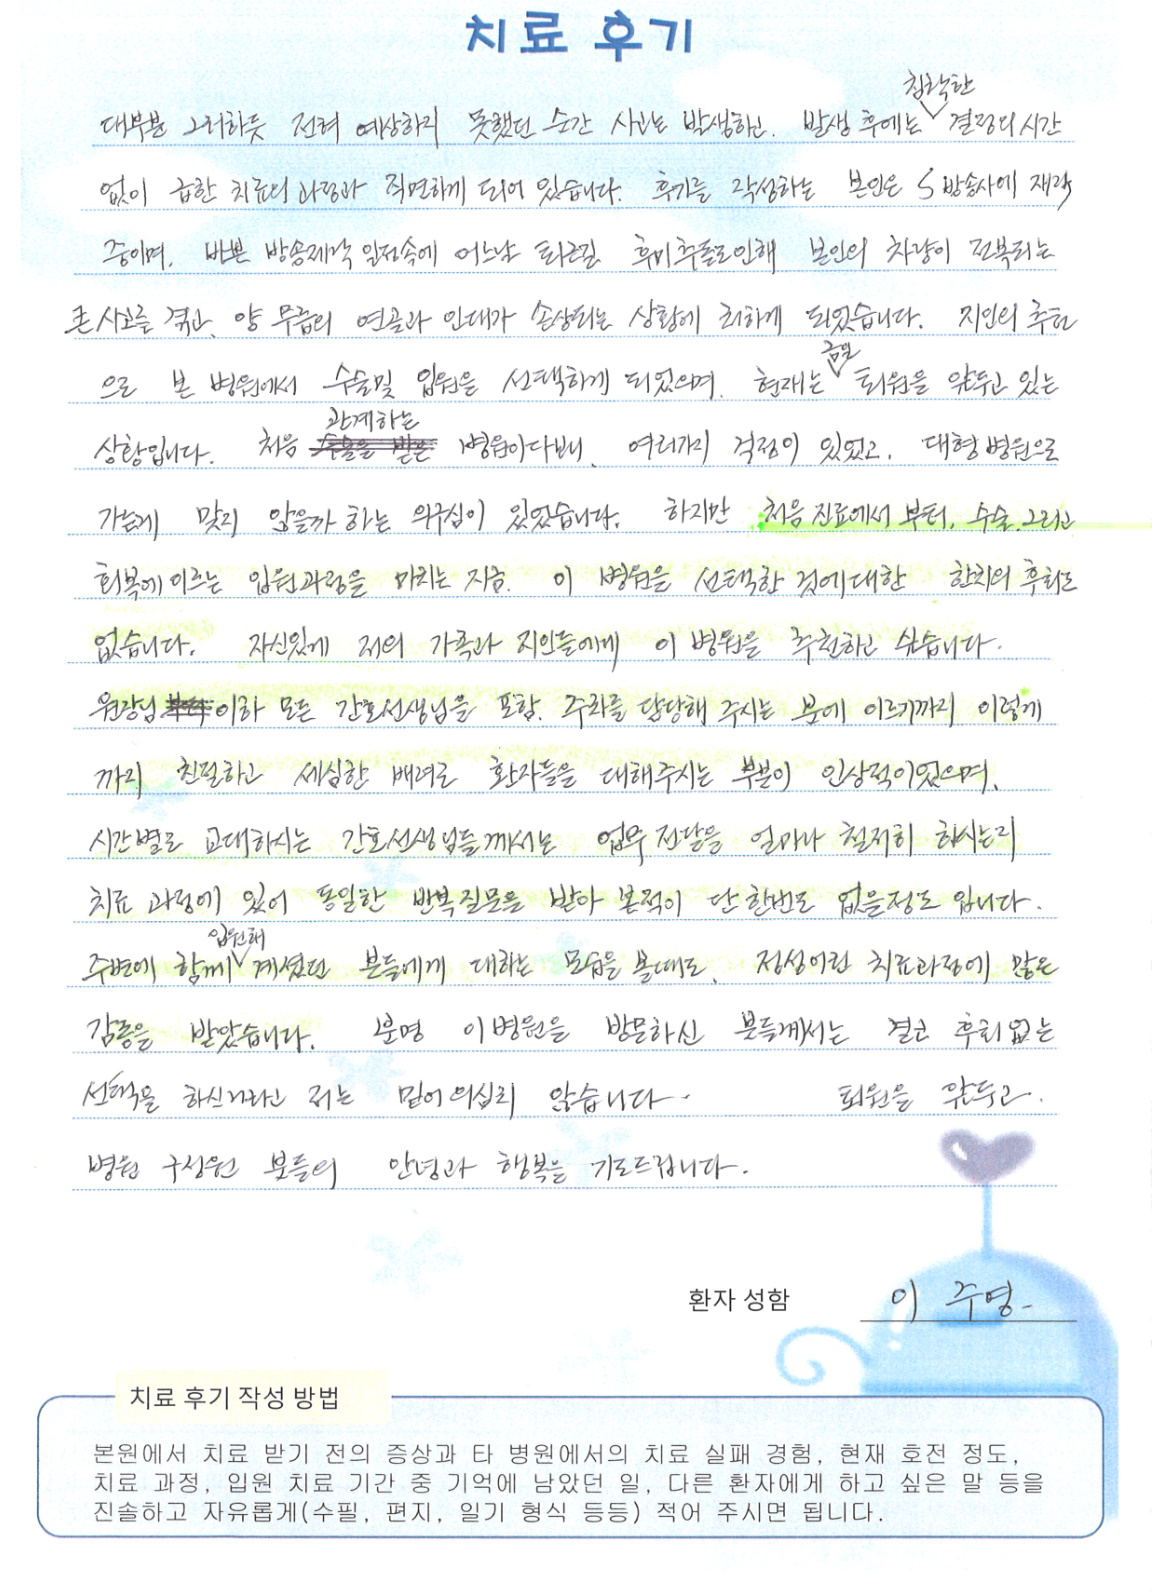 치료 후기
대부분 그러하듯 전혀 예상하지 못했던 순간 사고는 발생하고. 발생 후에는 침착한 결정의 시간
없이 급한 치료의 과정과 직면하게 되어 있습니다. 후기를 작성하는 본인은 S 방송사에 재직
중이며. 바쁜 방송제작 일정속에 어느날 퇴근길 후미추돌로인해 본인의 차량이 전복되는
큰 사고를 겪고, 양 무릎의 연골과 인대가 손상되는 상황에 처하게 되었습니다. 지인의 추천
으로 본 병원에서 수술및 입원을 선택하게 되었으며. 현재는 금일 퇴원을 앞두고 있는
상황입니다. 처음 관계하는 병원이다보니, 여러가지 걱정이 있었고. 대형병원으로
가는게 맞지 않을까 하는 의구심이 있었습니다. 하지만 처음 진료에서 부터. 수술. 그리고
회복에 이르는 입원과정을 마치는 지금. 이 병원을 선택한 것에대한 한치의 후회도
없습니다. 자신있게 저의 가족과 지인들에게 이 병원을 추천하고 싶습니다.
원장님 이하 모든 간호선생님을 포함. 주차를 담당해 주시는 분에 이르기까지 이렇게
까지 친절하고 세심한 배려로 환자들을 대해주시는 부분이 인상적이었으며.
시간별로 교대하시는 간호선생님들께서는 업무 전달을 얼마나 철저히 하시는지
치료 과정에 있어 동일한 반복질문을 받아 본적이 단 한번도 없을정도 입니다.
주변에 함께 입원해 계셨던 분들에게 대하는 모습을 볼때도, 정성어린 치료과정에 많은
감동을 받았습니다. 분명 이 병원을 방문하신 분들께서는 결코 후회없는
선택을 하신거라고 저는 믿어 의심치 않습니다. 퇴원을 앞두고.
병원 구성원 분들의 안녕과 행복을 기도드립니다.
환자 성함 이 주영
치료 후기 작성 방법
본원에서 치료 받기 전의 증상과 타 병원에서의 치료 실패 경험, 현재 호전 정도,
치료 과정, 입원 치료 기간 중 기억에 남았던 일, 다른 환자에게 하고 싶은 말 등을
진술하고 자유롭게(수필, 편지, 일기 형식 등등) 적어 주시면 됩니다.